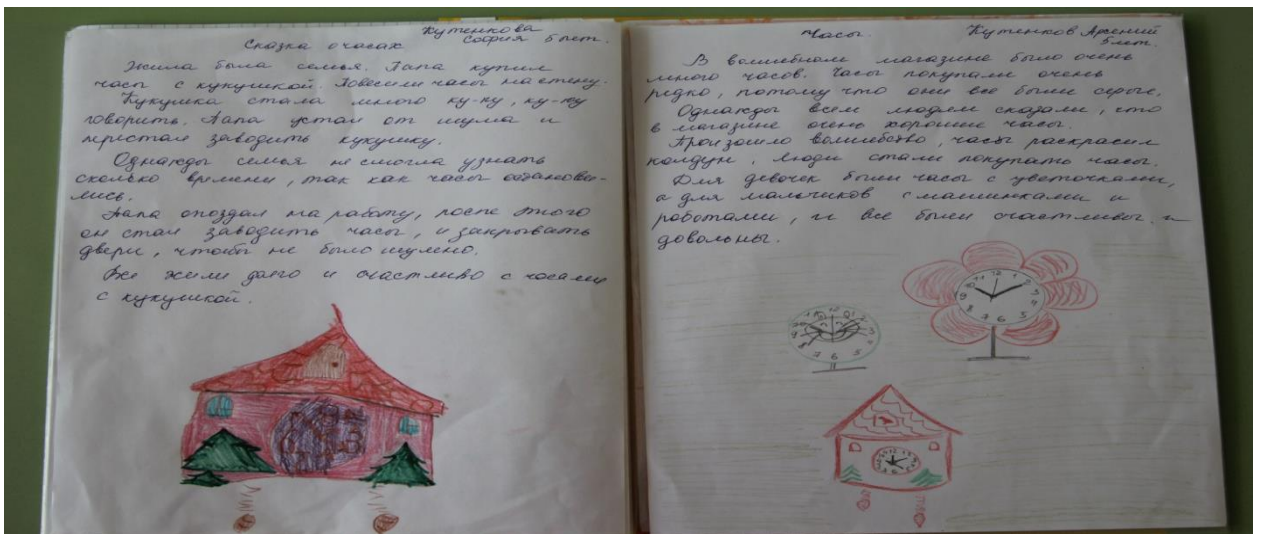 Кутенкова
Сказка о часах София 5 лет.
Жила была семья. Папа купил
часы с кукушкой. Повесили часы на стену.
Кукушка стала много ку-ку, ку-ку
говорить. Папа устал от шума и
перестал заводить кукушку.
Однажды семья не смогла узнать
сколько времени, так как часы останови-
лись.
Папа опоздал на работу, после этого
он стал заводить часы, и закрывать
двери, чтобы не было шумно.
Все жили долго и счастливо с часами
с кукушкой.
Часы. Кутенков Арсений
5 лет.
В волшебном магазине было очень
много часов. Часы покупали очень
редко, потому что они все были серые.
Однажды всем людям сказали, что
в магазине очень хорошие часы.
Произошло волшебство, часы раскрасил
колдун. Люди стали покупать часы.
Для девочек были часы с цветочками,
а для мальчиков с машинками и
роботами, и все были счастливы и
довольны.